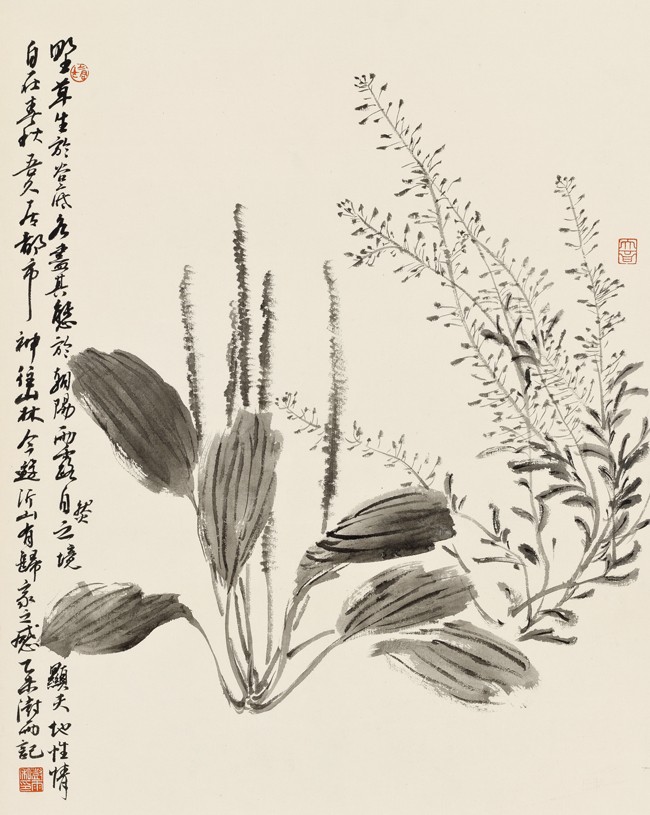 野草生於谷底各盡其態於朝陽雨露自然之境顯天地性情
自在春秋吾久居都市神往山林今遊沂山有歸家之感乙未澍雨記